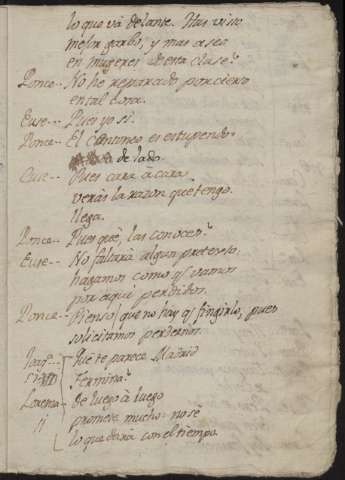 lo que vá delante. Has visto
mejor garbo, y mas aseo
en mugeres de esta clase?
Ponce-- No he reparado por cierto
en tal cosa.
Euse-- Pues yo sí.
Ponce-- El contoneo es estupendo
de lado.
Euse-- Pues cara a cara
verás la razon que tengo.
llega.
Ponce-- Pues què, las conoces?
Euse-- No faltará algun pretexto.
hagamos como q.e vamos
por aqui perdidos.
Ponce-- Pienso q.e no hay q.e fingirlo, pues
solicitamos perdernos.
Què te parece Madrid
Fermina?
Lorenza- de luego à luego
promete mucho: no sè
lo que dará con el tiempo.